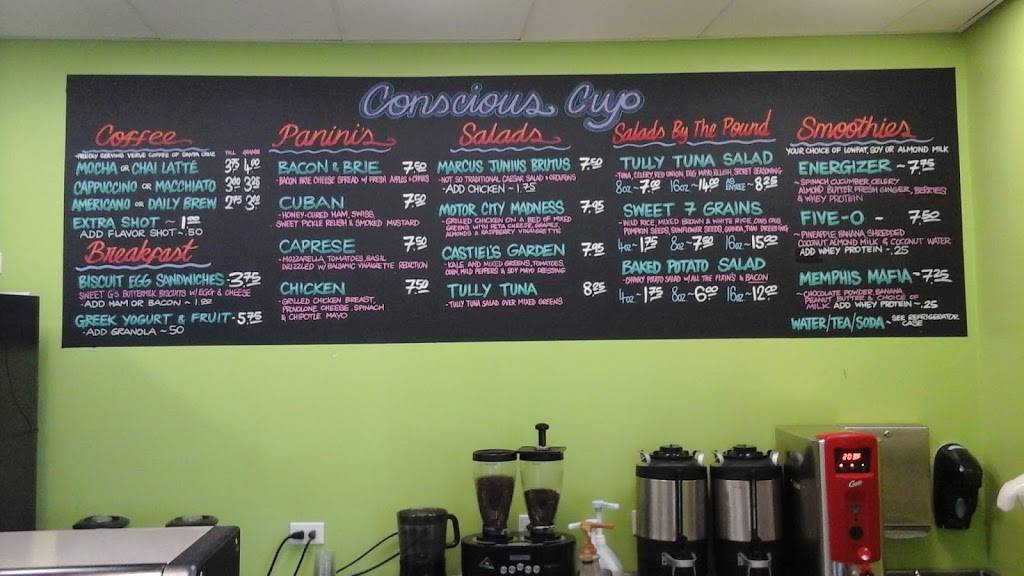 Conscious Cup
Coffee
PROUDLY SERVING VERVE COFFEE OF SANTA CRUZ
TALL GRANDE
MOCHA OR CHAI LATTE 3.75 4.00
CAPPUCCINO OR MACCHIATO 3.00 3.25
AMERICANO OR DAILY BREW 2.75 3.00
EXTRA SHOT ~ 1.00
ADD FLAVOR SHOT ~ .50
Breakfast
BISCUIT EGG SANDWICHES - 3.75
SWEET G'S BUTTERMILK BISCUITS W/ EGG & CHEESE
- ADD HAM OR BACON ~ 1.00
GREEK YOGURT & FRUIT - 5.75
- ADD GRANOLA ~ 50
Panini's
BACON & BRIE 7.50
- BACON BRIE CHEESE SPREAD W/ FRESH APPLES & CHIVES
CUBAN 7.50
- HONEY-CURED HAM, SWISS
SWEET PICKLE RELISH & SMOKED MUSTARD
CAPRESE 7.50
- MOZZARELLA, TOMATOES, BASIL
DRIZZLED W/ BALSAMIC VINAIGETTE REDUCTION
CHICKEN 7.50
- GRILLED CHICKEN BREAST,
PROVOLONE CHEESE, SPINACH
& CHIPOTLE MAYO
Salads
MARCUS JUNIUS BRUTUS 7.50
- NOT SO TRADITIONAL CAESAR SALAD & CROUTONS
- ADD CHICKEN ~ 1.75
MOTOR CITY MADNESS 7.95
- GRILLED CHICKEN ON A BED OF MIXED
GREENS WITH FETA CHEESE, GRAPES,
ALMONDS & RASPBERRY VINAIGRETTE
CASTIEL'S GARDEN 7.95
- KALE AND MIXED GREENS, TOMATOES,
CORN, MILD PEPPERS & SOY MAYO DRESSING
TULLY TUNA 8.25
- TULLY TUNA SALAD OVER MIXED GREENS
Salads By The Pound
TULLY TUNA SALAD
- TUNA, CELERY, RED ONION, EGG MAYO RELISH, SECRET SEASONING
8oz ~ 7.00 16oz ~ 14.00 AS ENTREE ~ 8.25
SWEET 7 GRAINS
- WILD RICE MIXED BROWN & WHITE RICE, COUS COUS,
PUMPKIN SEEDS, SUNFLOWER SEEDS, QUINOA, THAI DRESSING
4oz - 1.75 8oz ~ 7.50 16oz ~ 15.00
BAKED POTATO SALAD
- CHUNKY POTATO SALAD W/ALL THE FIXIN'S & BACON
4oz ~ 1.75 8oz ~ 6.00 16oz ~ 12.00
Smoothies
YOUR CHOICE OF LOWFAT, SOY OR ALMOND MILK
ENERGIZER ~ 7.75
~ SPINACH, CUCUMBER, CELERY
ALMOND BUTTER FRESH GINGER, BERRIES
& WHEY PROTEIN
FIVE-O ~ 7.50
~ PINEAPPLE, BANANA, SHREDDED
COCONUT, ALMOND MILK & COCONUT WATER
ADD WHEY PROTEIN - .25
MEMPHIS MAFIA ~ 7.25
~ CHOCOLATE POWDER, BANANA
PEANUT BUTTER & CHOICE OF
MILK ADD WHEY PROTEIN ~ .25
WATER/TEA/SODA ~ SEE REFRIGERATOR
CASE